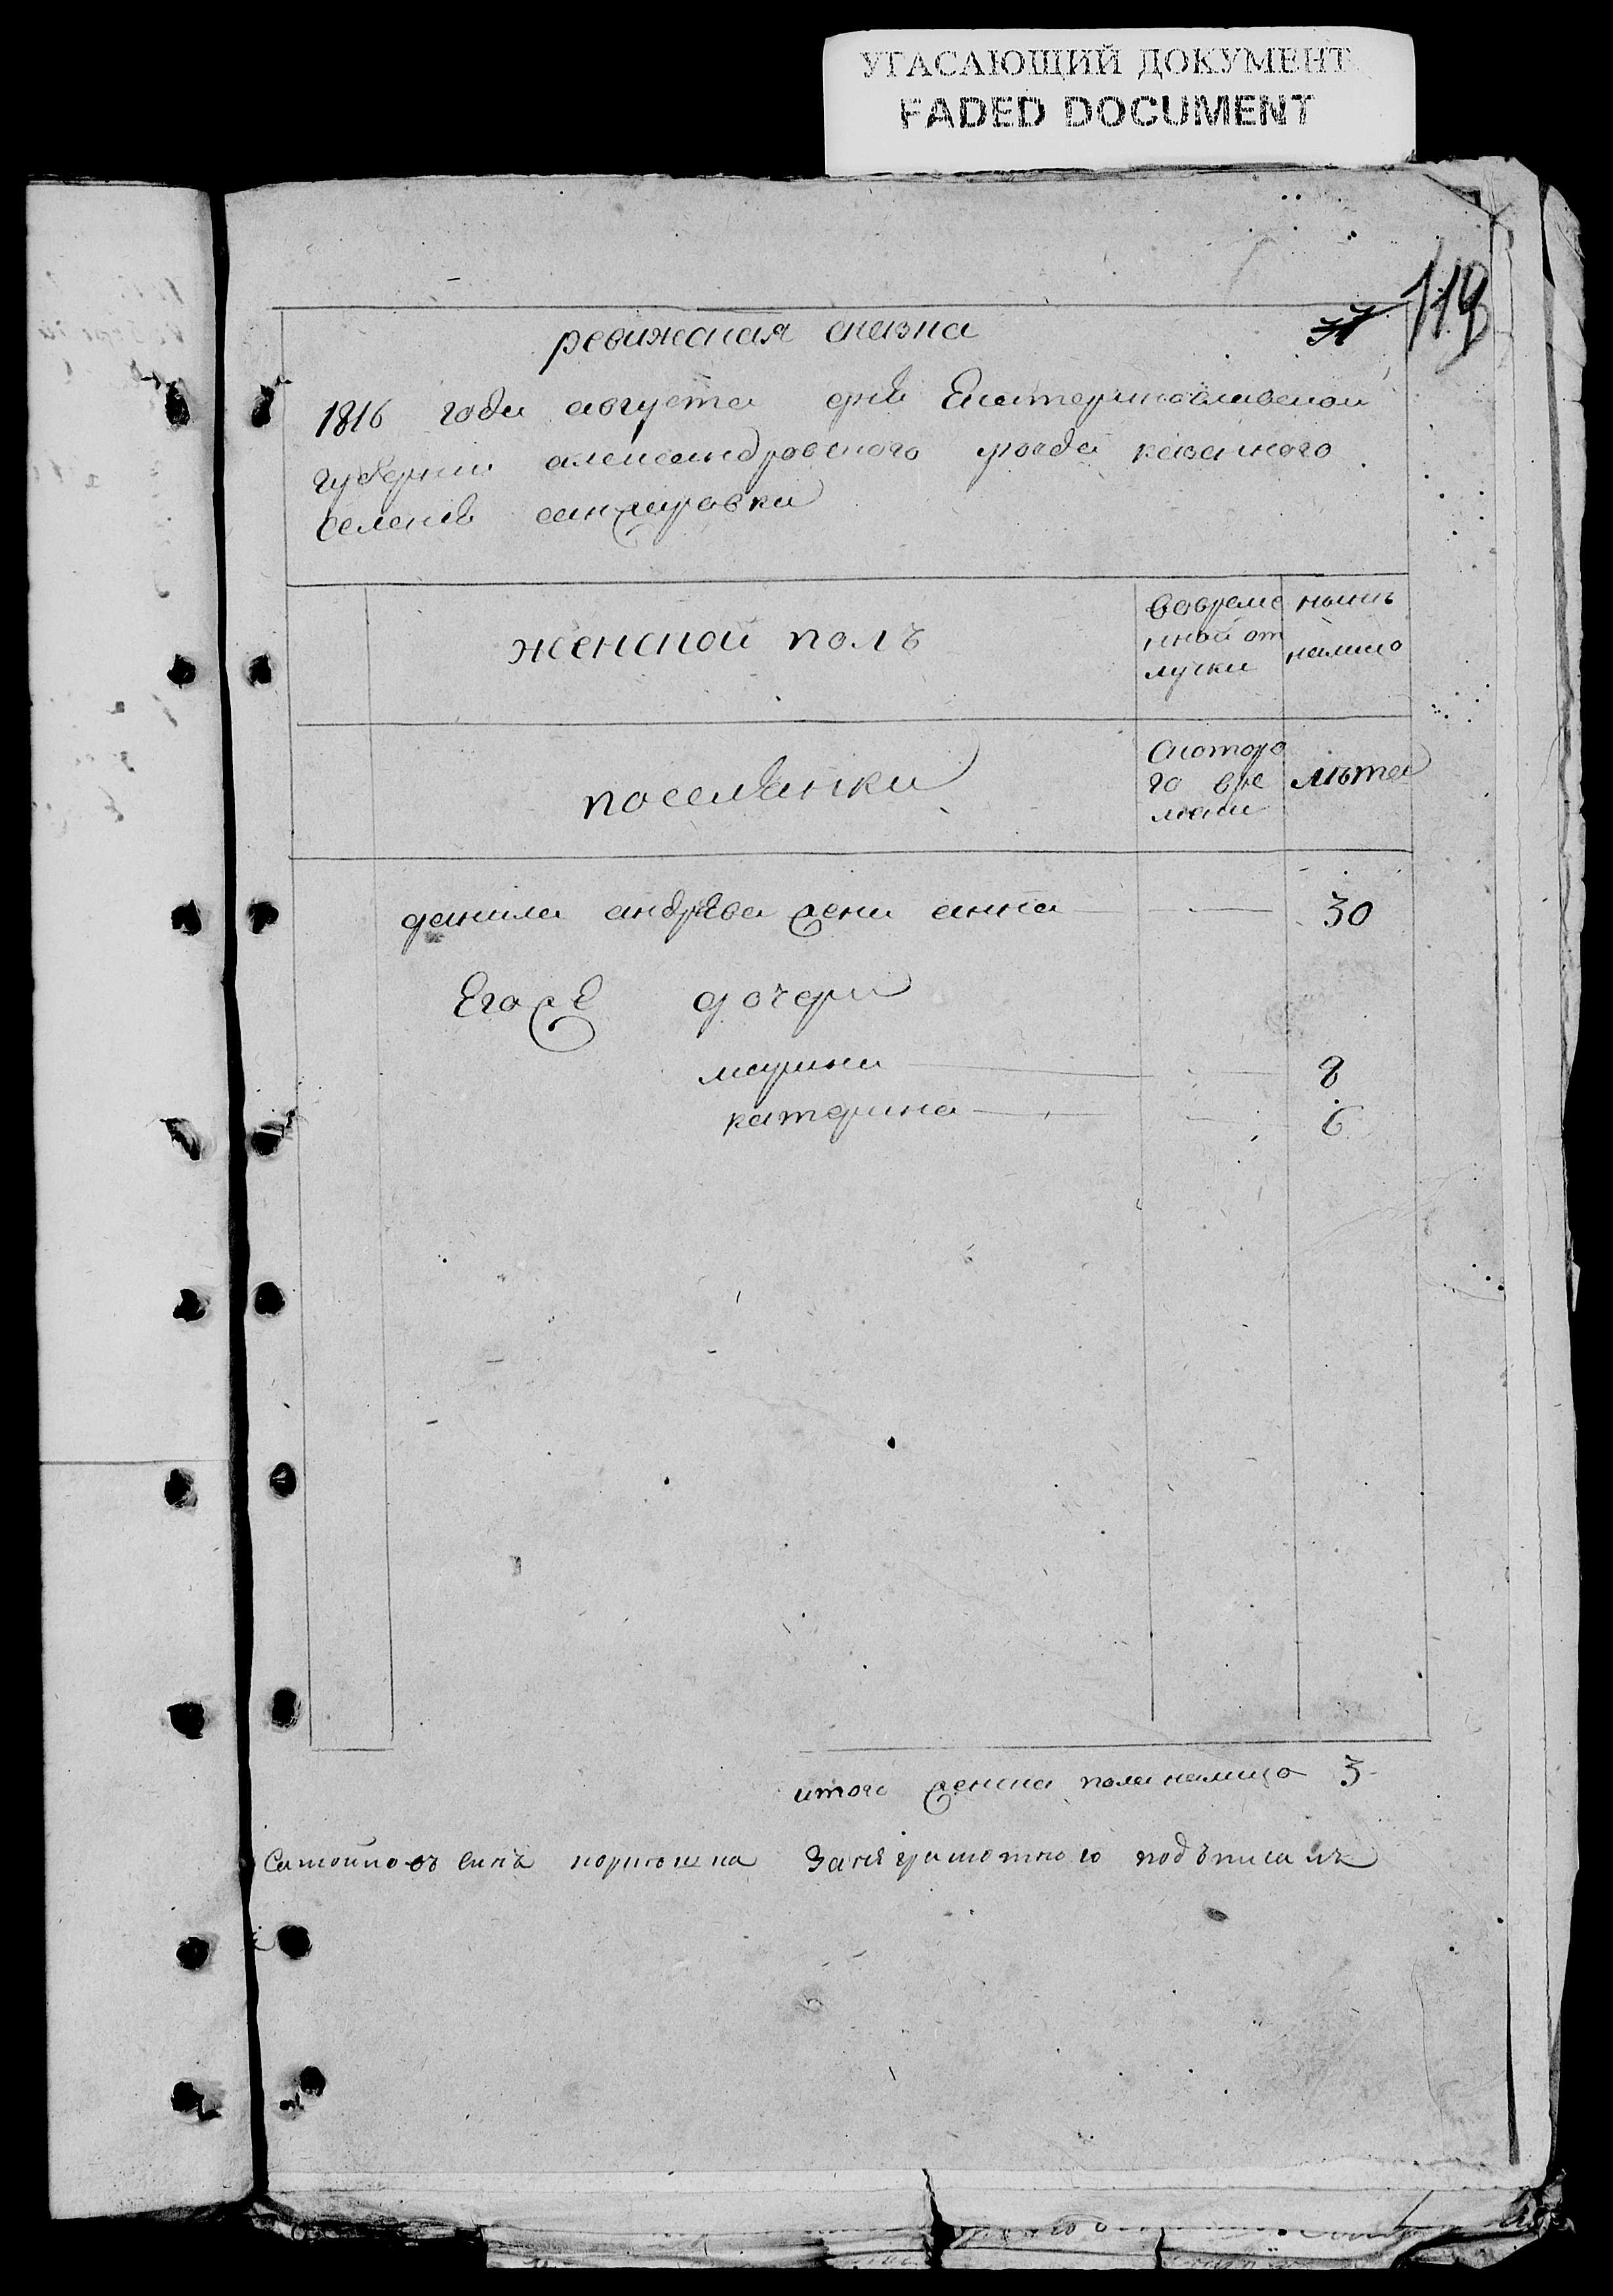 УГАСАЮЩИЙ ДОКУМЕНТ
FADED DOCUMENT
119
ревижская сказка
1816 года августа дня Екатеринославской
губернии александровского уезда казенного
селения
женской полъ
вовреме
нной от
лучки
нынѣ
налицо
поселянки
Скоторо
го вре
мени
лѣта
данила андрѣева жена анна 30
Егоже дочери
марина 8
катерина 6
итого женска пола налицо 3
синъ занеграмотного подъписалъ